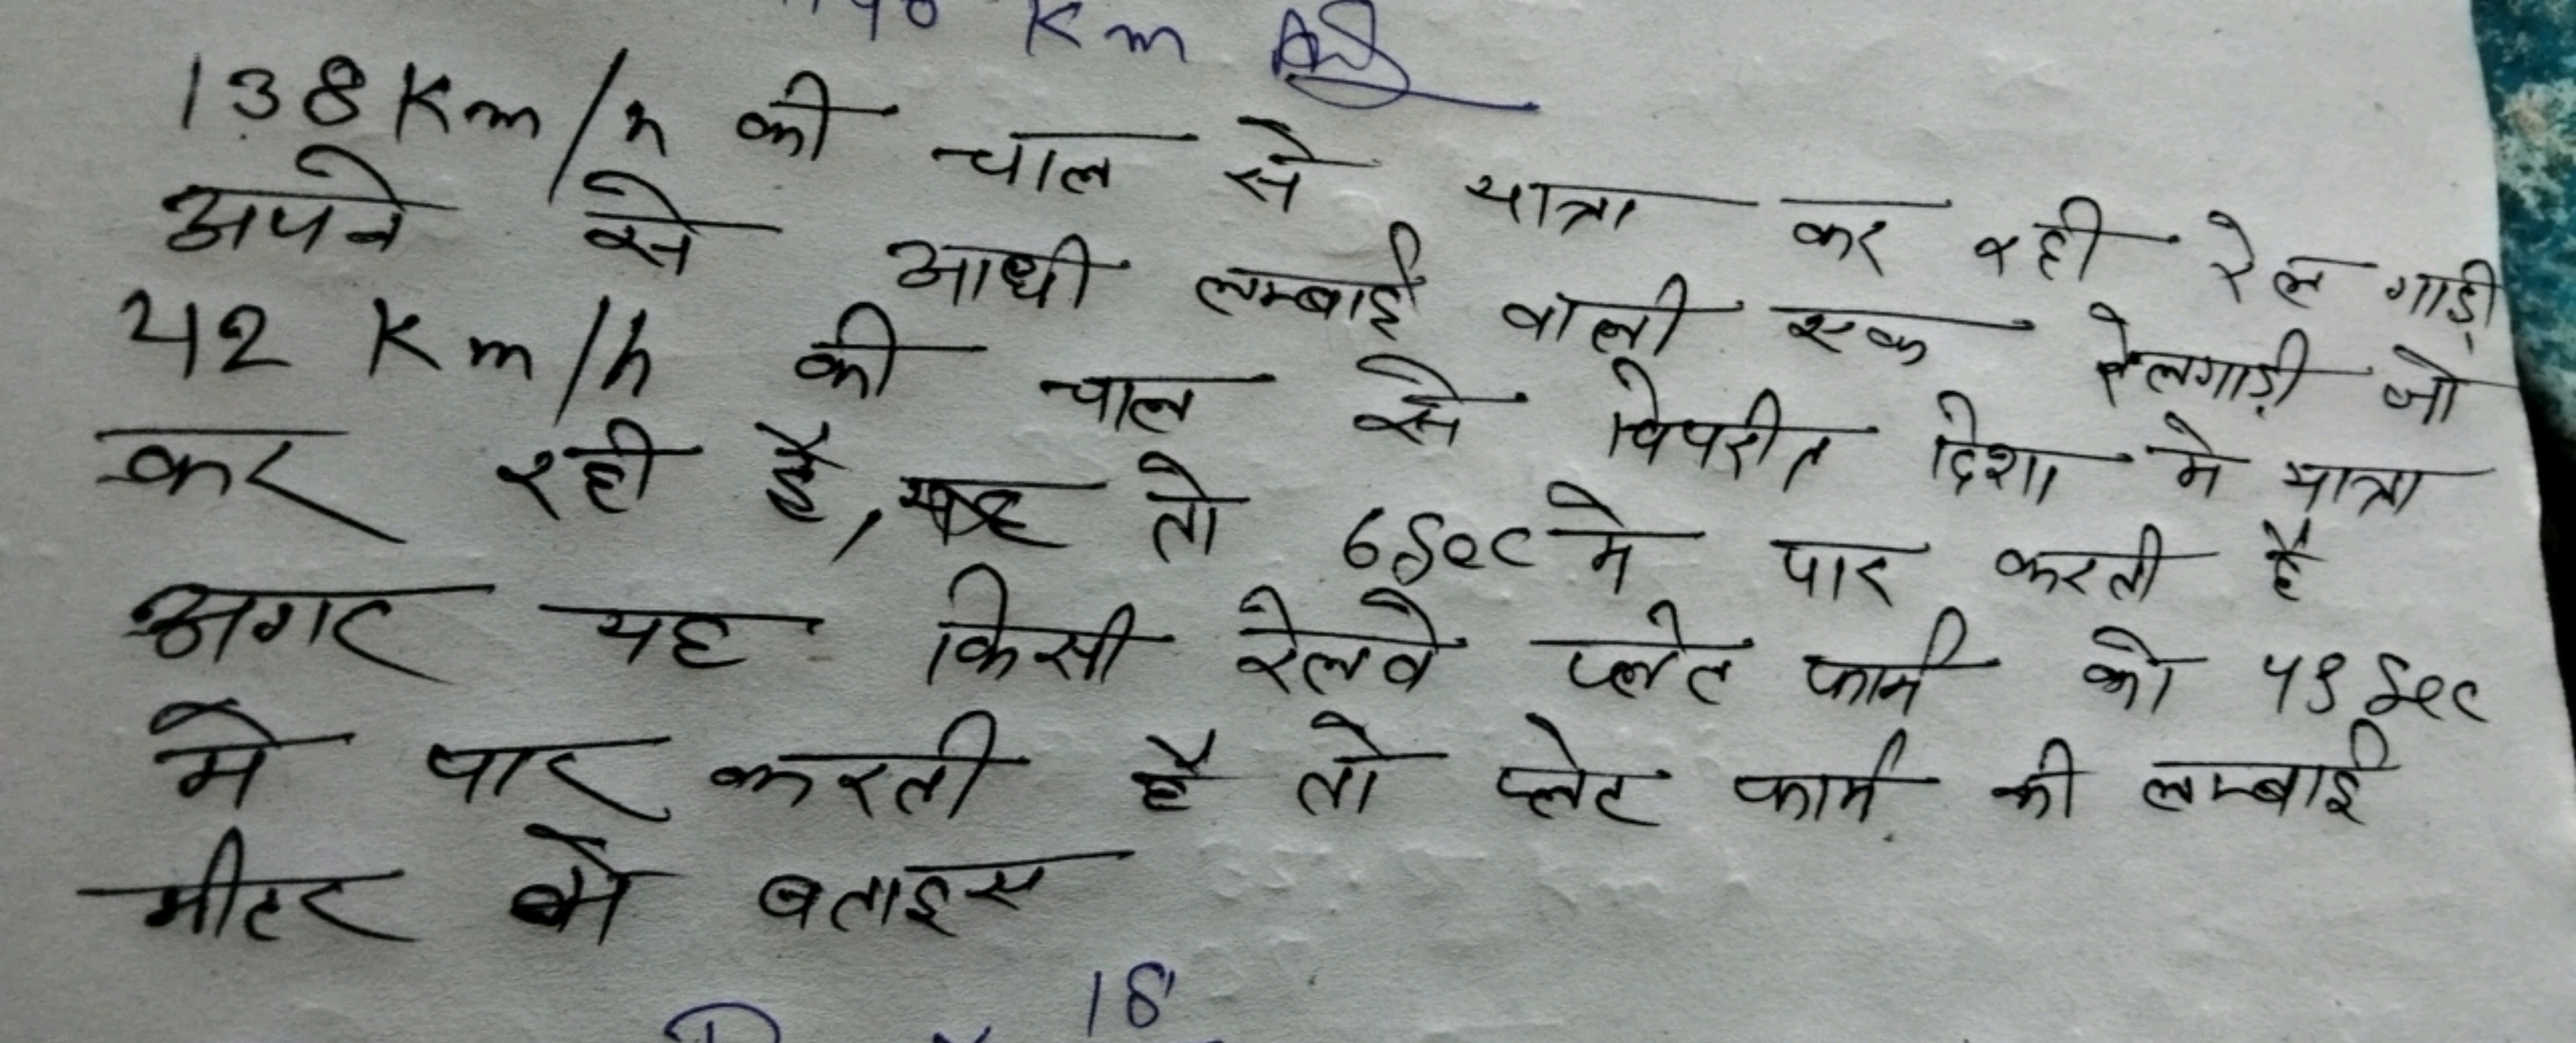 Km
138 Km/h की चाल से यात्रा कर रही रेल गाड़ी
अपने से आधी लम्बाई वाली एक रेलगाड़ी जो
42 Km/h की चाल से विपरीत दिशा मे यात्रा
कर रही है, तो 6 Sec मे पार करती है
अगर यह किसी रेलवे प्लेट फार्म को Sec
मे पार करती है तो प्लेट फार्म की लम्बाई
मीटर मे बताइए
18